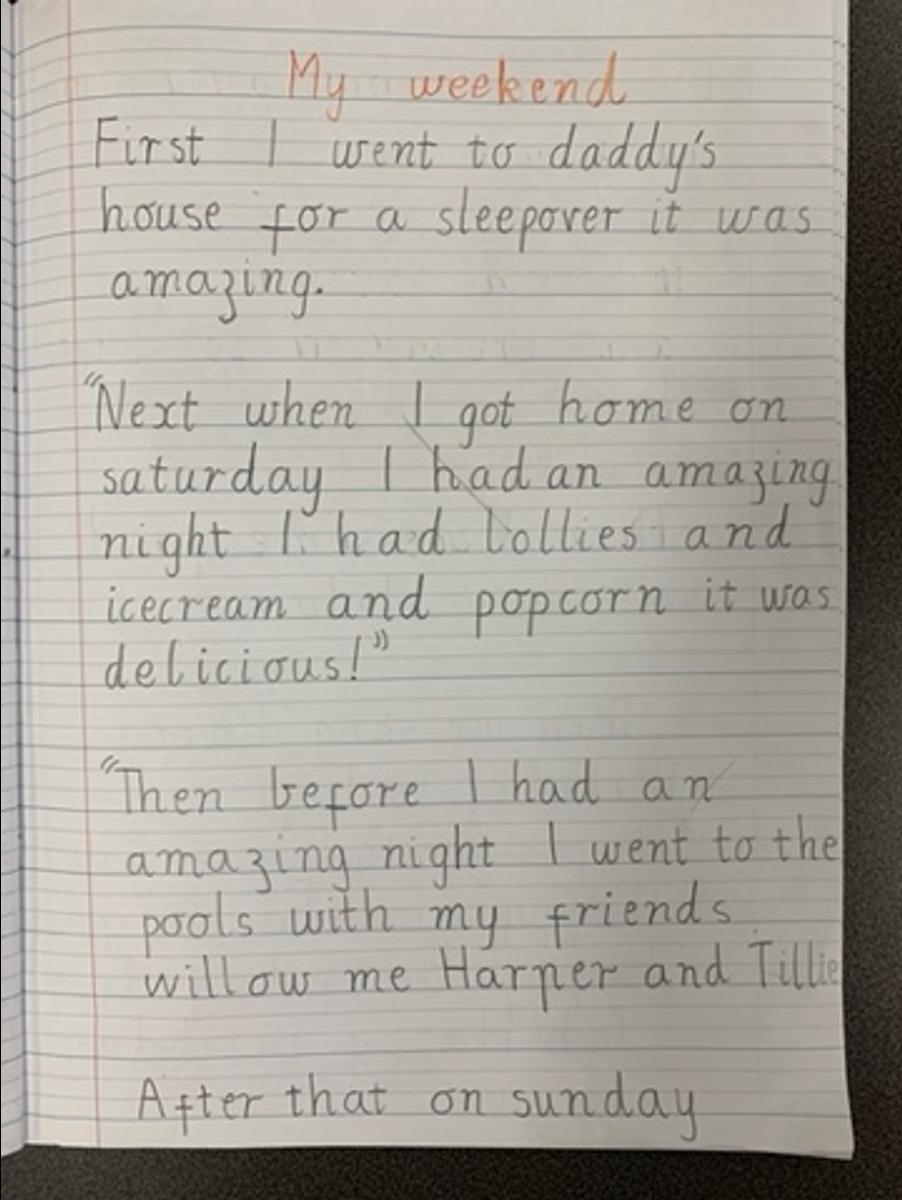 My weekend
First I went to daddy's
house for a sleepover it was
amazing.
"Next when I got home on
saturday I had an amazing
night I had lollies and
icecream and popcorn it was
delicious!"
"Then before I had an
amazing night I went to the
pools with my friends
willow me Harper and Tillie
After that on sunday